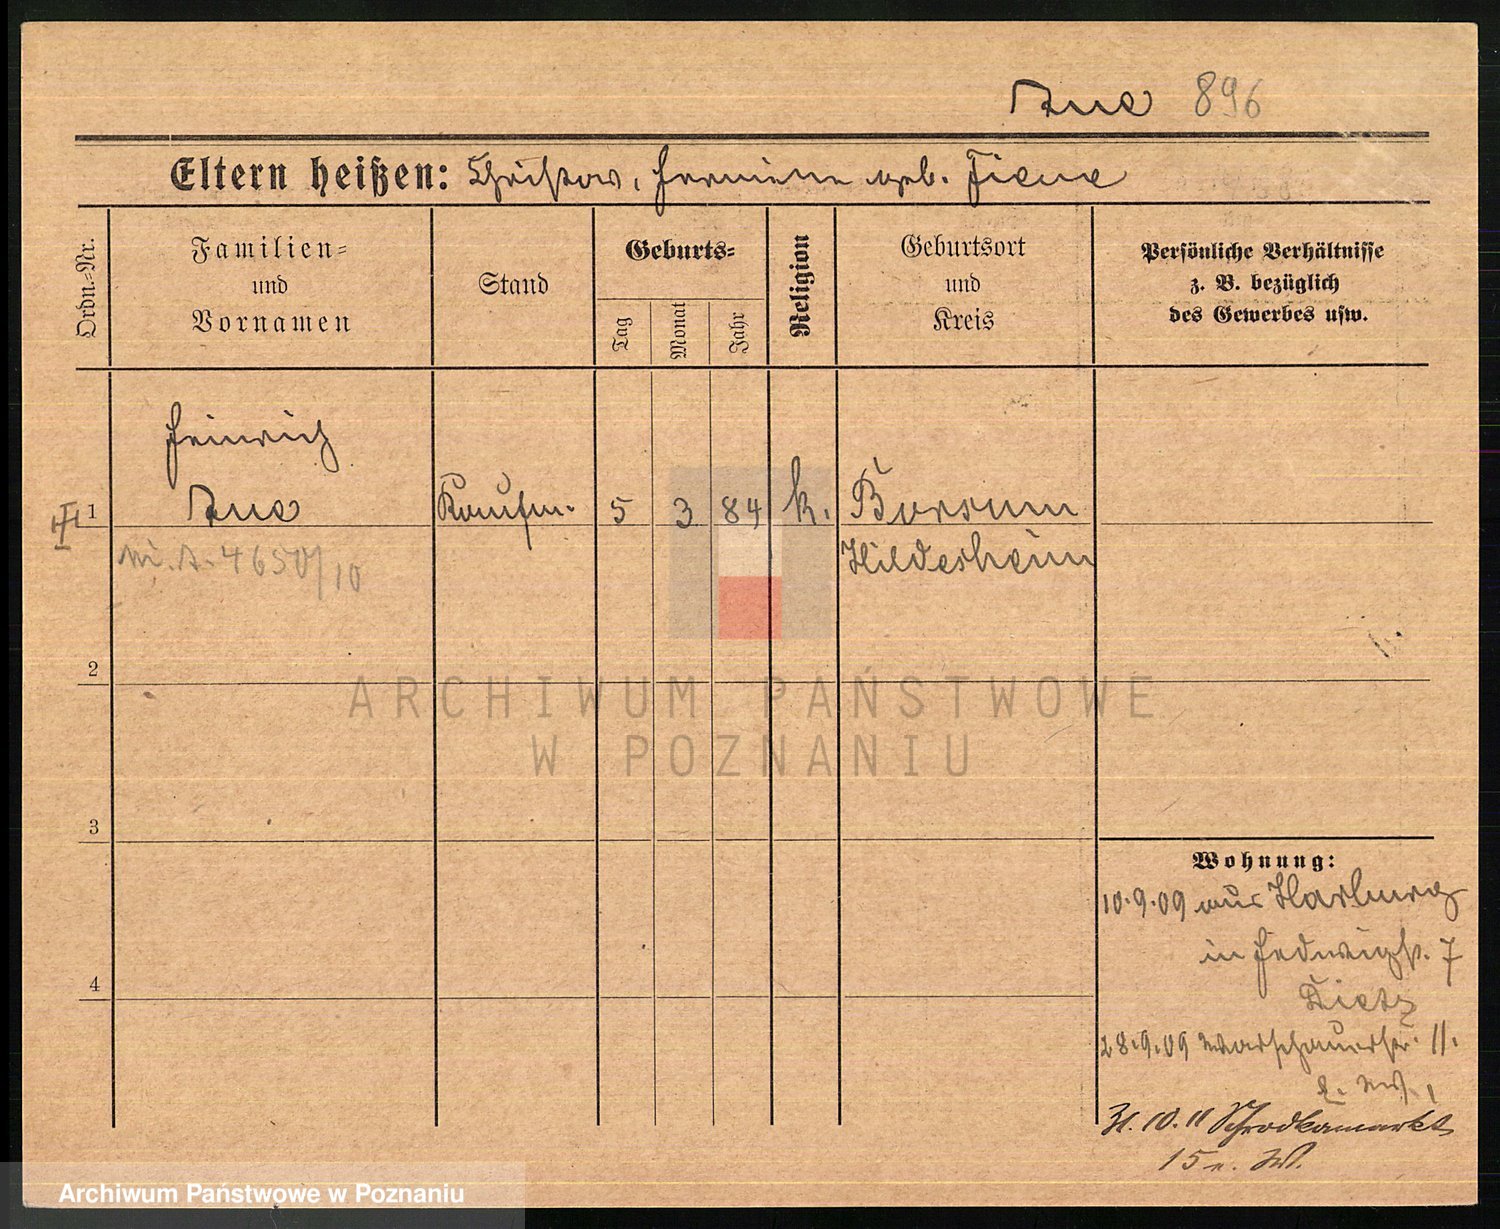 Aue 896
Eltern heißen: Christov, Hermine geb. Fiene
Ordn.-Nr.
Familien-
und
Vornamen
Stand
Geburts-
Tag
Monat
Jahr
Religion
Geburtsort
und
Kreis
Persönliche Verhältnisse
z. B. bezüglich
des Gewerbes usw.
Heinrich
1 Aue Kaufm. 5 3 84 k. Borsum
4650/10 Hildesheim
2
ARCHIWUM PAŃSTWOWE
W POZNANIU
3
Wohnung:
10.9.09 aus Harburg
in Hedwigst. 7
Dietz
4
28.9.09 Warschauerstr. 11.
31.10.11 Schrodkamarkt
15
Archiwum Państwowe w Poznaniu